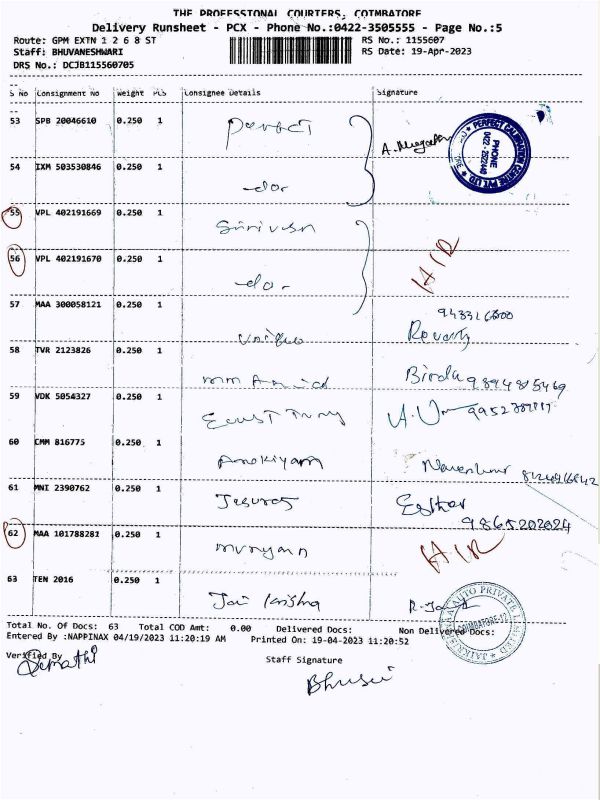 THE PROFESSIONAL COURIERS, COIMBATORE
Delivery Runsheet - PCX - Phone No.:0422-3505555 - Page No.:5
Route: GPM EXTN 1 2 6 8 ST
RS No.: 1155607
Staff: BHUVANESHWARI
RS Date: 19-Apr-2023
DRS No.: DCJB115560705
S No Consignment No Weight PCS Consignee Details Signature
53 SPB 20046610 0.250 1 Perfect
PERFECT CALIBRATION CENTRE PVT. LTD.
PHONE
54 IXM 503530846 0.250 1 -do-
55 VPL 402191669 0.250 1
56 VPL 402191670 0.250 1 -do-
57 MAA 300058121 0.250 1 Unique Revathy
58 TVR 2123826 0.250 1 Birdu 9894815469
59 VDK 5054327 0.250 1
60 CMM 816775 0.250 1 Arokiyam
61 MNI 2390762 0.250 1 Jesuraj Esther
9865202024
62 MAA 101788281 0.250 1 Murugan
63 TEN 2016 0.250 1 Jai Krishna
AUTO PRIVATE LIMITED
COIMBATORE-12
Total No. Of Docs: 63 Total COD Amt: 0.00 Delivered Docs: Non Delivered Docs:
Entered By :NAPPINAX 04/19/2023 11:20:19 AM Printed On: 19-04-2023 11:20:52
Verified By
Staff Signature